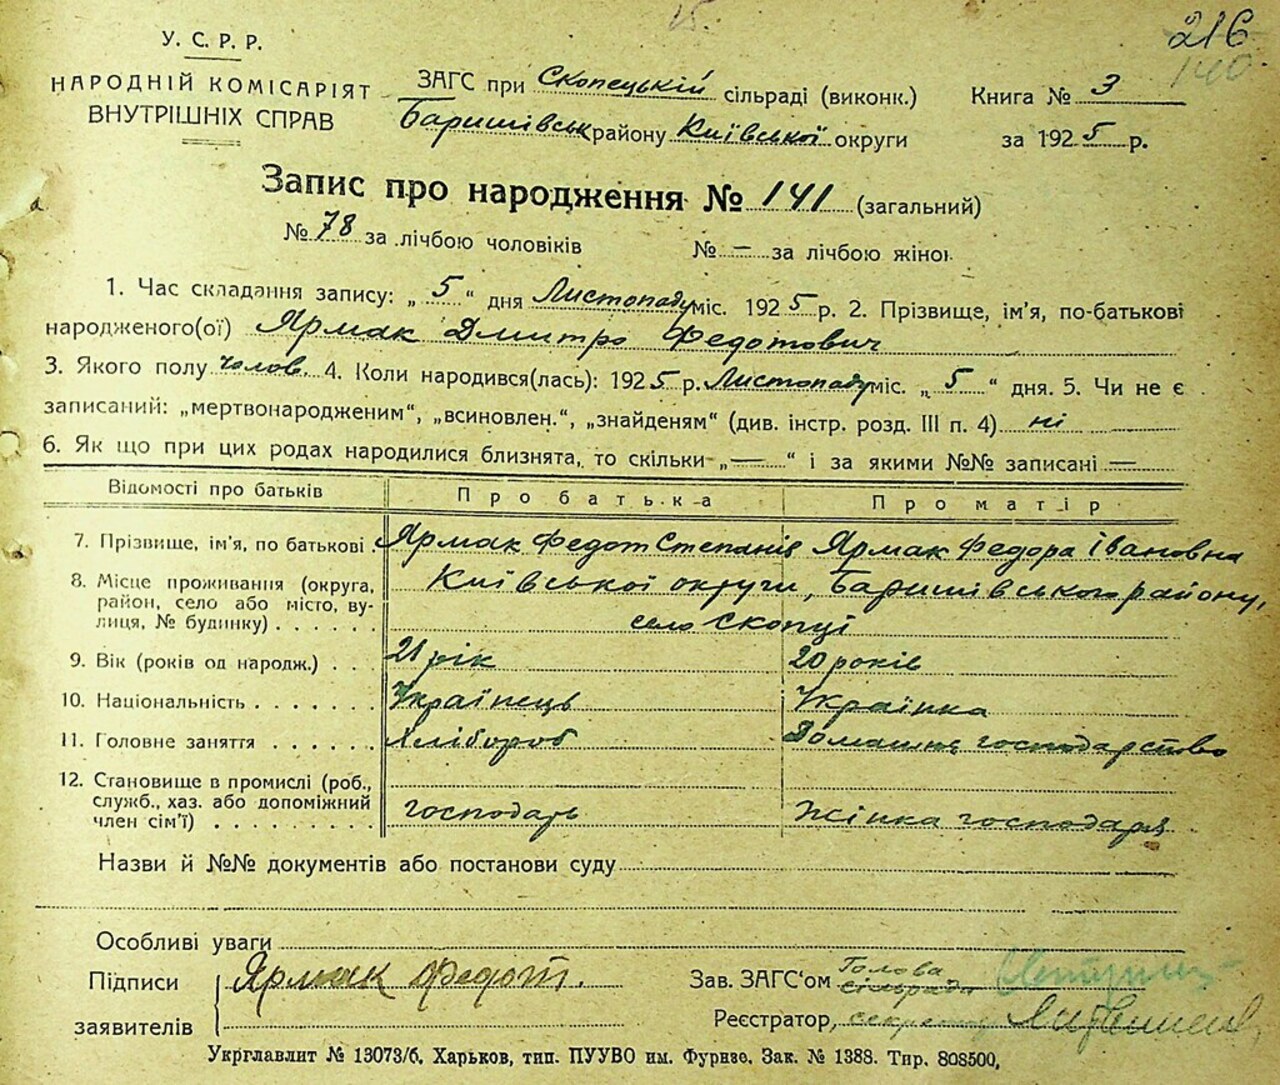 15.
216
140
У. С. Р. Р.
НАРОДНІЙ КОМІСАРІЯТ
ВНУТРІШНІХ СПРАВ
ЗАГС при Скопецькій сільраді (виконк.)
Баришівськ району Київської округи
Книга № 3
за 1925 р.
Запис про народження № 141 (загальний)
№ 78 за лічбою чоловіків № — за лічбою жінок
1. Час складання запису: „ 5 “ дня Листопаду міс. 1925 р. 2. Прізвище, ім'я, по-батькові
народженого(ої) Ярмак Дмитро Федотович
3. Якого полу чолов. 4. Коли народився(лась): 1925 р. Листопаду міс. „ 5 “ дня. 5. Чи не є
записаний: „мертвонародженим“, „всиновлен.“, „знайденям“ (див. інстр. розд. III п. 4) ні
6. Як що при цих родах народилися близнята, то скільки „ — “ і за якими №№ записані —
Відомості про батьків Про батька Про матір
7. Прізвище, ім'я, по батькові . Ярмак Федот Степанів Ярмак Федора Івановна
8. Місце проживання (округа, район, село або місто, вулиця, № будинку) . . . . . . Київської округи, Баришівського району,
село Скопці
9. Вік (років од народж.) . . . 21 рік 20 років
10. Національність . . . . . . . Українець Українка
11. Головне заняття . . . . . . Хлібороб Домашнє господарство
12. Становище в промислі (роб.,
служб., хаз. або допоміжний
член сім'ї) . . . . . . . . . господарь Жінка господаря
Назви й №№ документів або постанови суду
Особливі уваги
Підписи
заявителів
Ярмак Федот.
Зав. ЗАГС'ом Голова
сільради
Реєстратор, секретар
Укрглавлит № 13073/б. Харьков, тип. ПУУВО им. Фурнзе. Зак. № 1388. Тир. 808500,